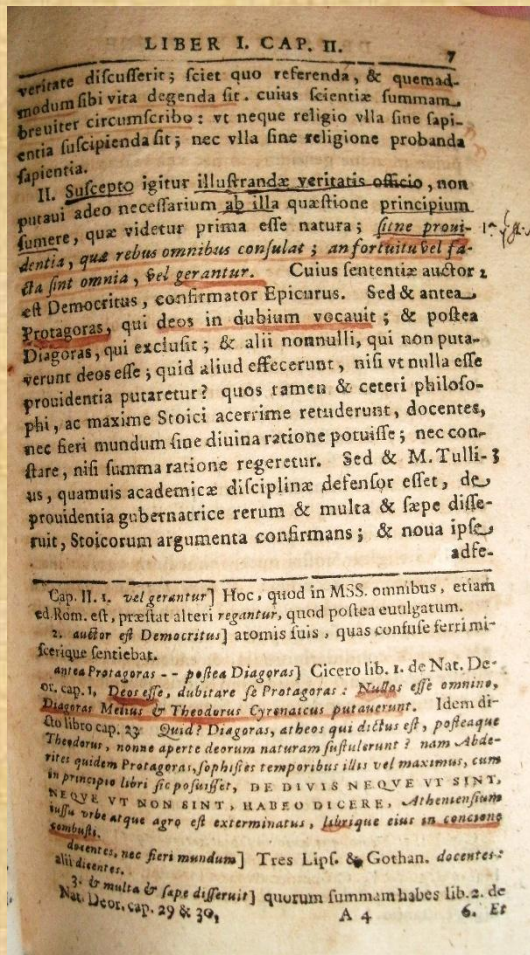 LIBER I. CAP. II.
7
veritate discusserit; sciet quo referenda, & quemad-
modum sibi vita degenda sit. cuius scientiæ summam
breuiter circumscribo: vt neque religio vlla sine sapi-
entia suscipienda sit; nec vlla sine religione probanda
sapientia.
II. Suscepto igitur illustrandæ veritatis officio, non
putaui adeo necessarium ab illa quæstione principium
sumere, quæ videtur prima esse natura; sitne proui-
dentia, quæ rebus omnibus consulat; an fortuitu vel fa-
cta sint omnia, vel gerantur. Cuius sententiæ auctor 2
est Democritus, confirmator Epicurus. Sed & antea
Protagoras, qui deos in dubium vocauit; & postea
Diagoras, qui exclusit; & alii nonnulli, qui non puta-
verunt deos esse; quid aliud effecerunt, nisi vt nulla esse
prouidentia putaretur? quos tamen & ceteri philoso-
phi, ac maxime Stoici acerrime retuderunt, docentes,
nec fieri mundum sine diuina ratione potuisse; nec con-
stare, nisi summa ratione regeretur. Sed & M. Tulli- 3
us, quamuis academicæ disciplinæ defensor esset, de
prouidentia gubernatrice rerum & multa & sæpe disse-
ruit, Stoicorum argumenta confirmans; & noua ipse
adfe-
Cap. II. 1. vel gerantur] Hoc, quod in MSS. omnibus, etiam
ed. Rom. est, præstat alteri regantur, quod postea euulgatum.
2. auctor est Democritus] atomis suis, quas confuse ferri mi-
scerique sentiebat.
antea Protagoras - - postea Diagoras] Cicero lib. 1. de Nat. De-
or. cap. 1, Deos esse, dubitare se Protagoras: Nullos esse omnino,
Diagoras Melius & Theodorus Cyrenaicus putaverunt. Idem di-
cto libro cap. 23 Quid? Diagoras, atheos qui dictus est, posteaque
Theodorus, nonne aperte deorum naturam sustulerunt? nam Abde-
rites quidem Protagoras, sophistes temporibus illis vel maximus, cum
in principio libri sic posuisset, DE DIVIS NEQVE VT SINT,
NEQVE VT NON SINT, HABEO DICERE, Atheniensium
iussu vrbe atque agro est exterminatus, librique eius in concione
combusti.
docentes, nec fieri mundum] Tres Lips. & Gothan. docentes:
alii dicentes.
3. & multa & sæpe disseruit] quorum summam habes lib. 2. de
Nat. Deor. cap. 29 & 30,
A 4
6. Et